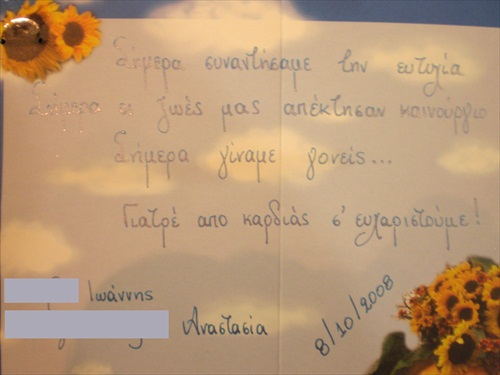 Σήμερα συναντήσαμε την ευτυχία
Σήμερα οι ζωές μας απέκτησαν καινούργιο
Σήμερα γίναμε γονείς...
Γιατρέ απο καρδιάς σ' ευχαριστούμε!
Ιωάννης
Αναστασία
8/10/2008